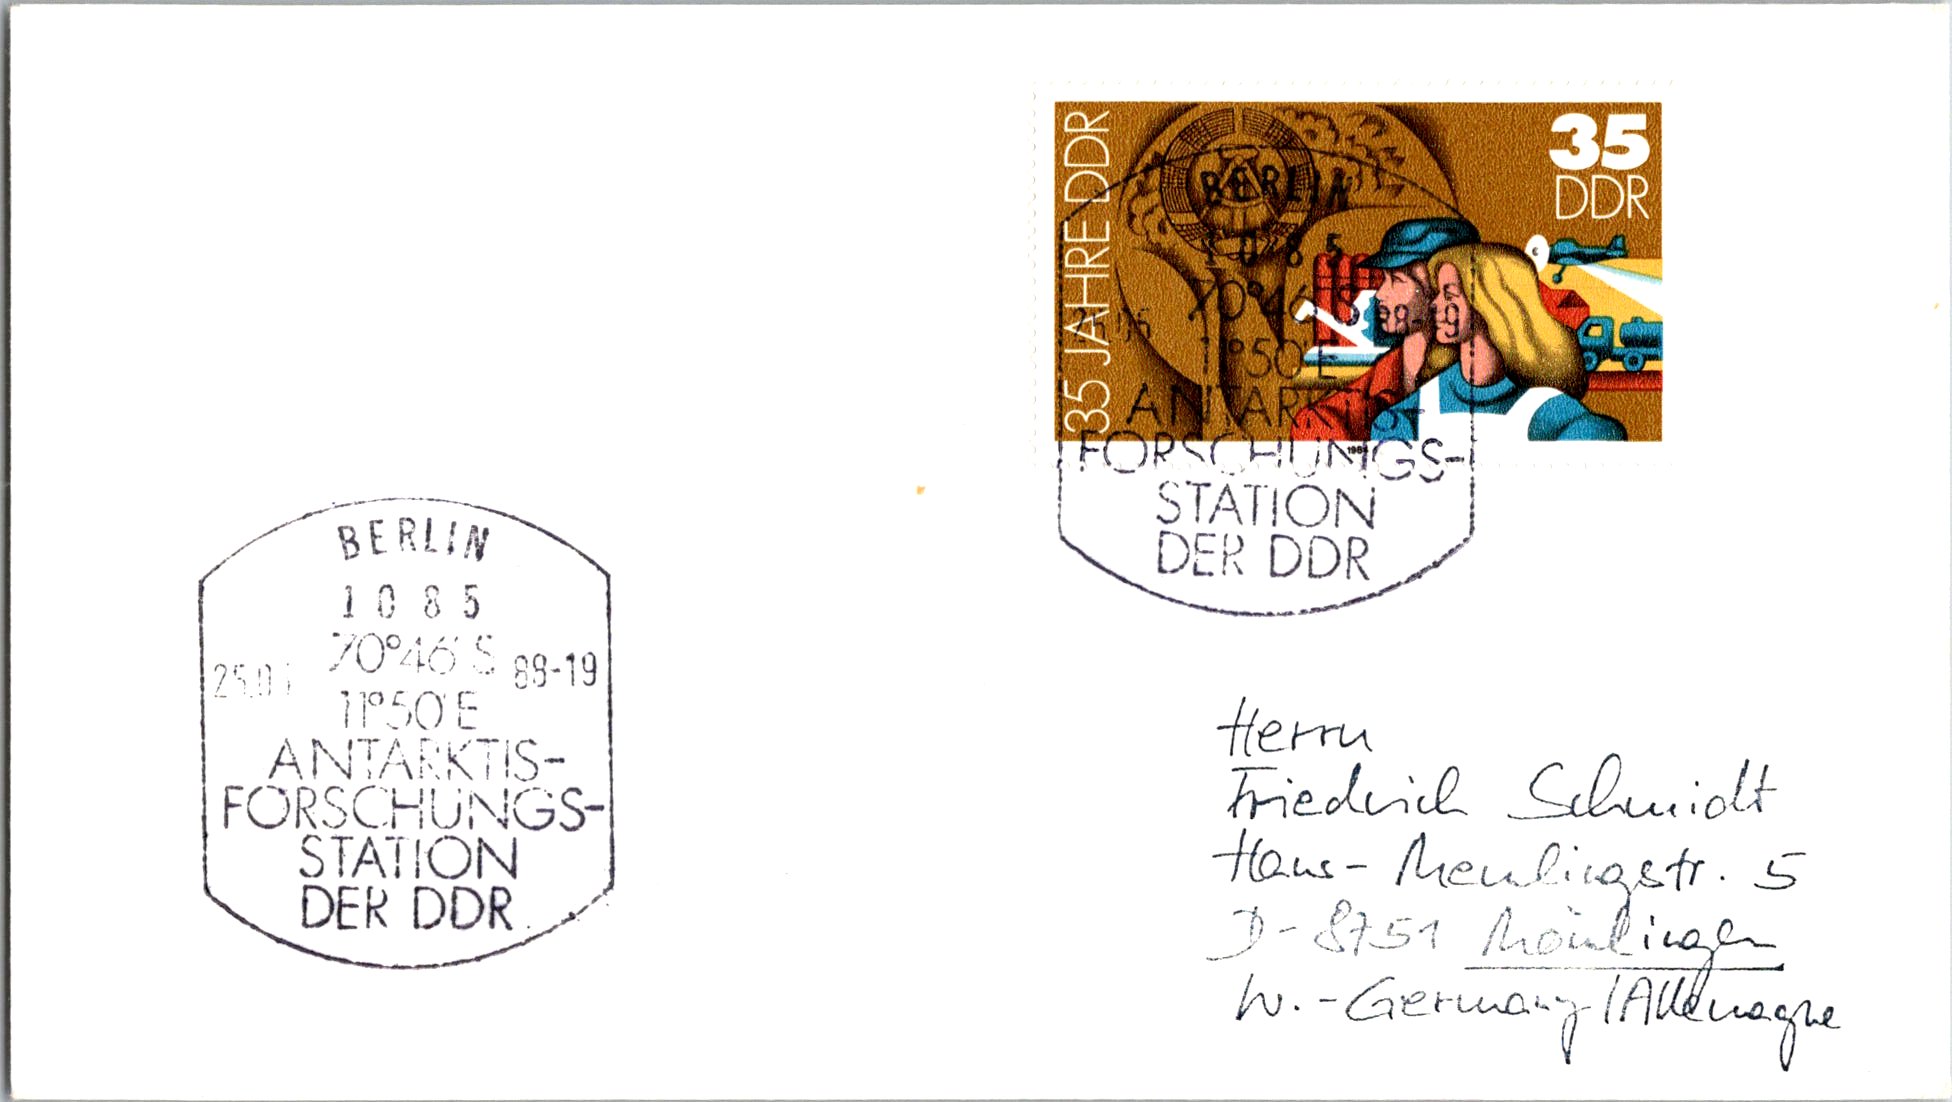 35 JAHRE DDR
35
DDR
1984
BERLIN
1085
70°46' S
88-19
11°50' E
ANTARKTIS-
FORSCHUNGS-
STATION
DER DDR
BERLIN
1085
70°46' S
88-19
11°50' E
ANTARKTIS-
FORSCHUNGS-
STATION
DER DDR
Herrn
Friedrich Schmidt
Hans-Memlingstr. 5
D-8751 Mömlingen
W.-Germany/Allemagne